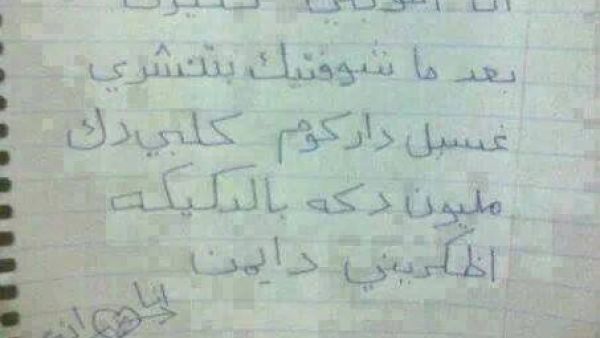 بعد ما شوفتيك بتنشري
غسيل داركوم كلبي دك
مليون دكه بالدكيكه
اظكريني دايمن